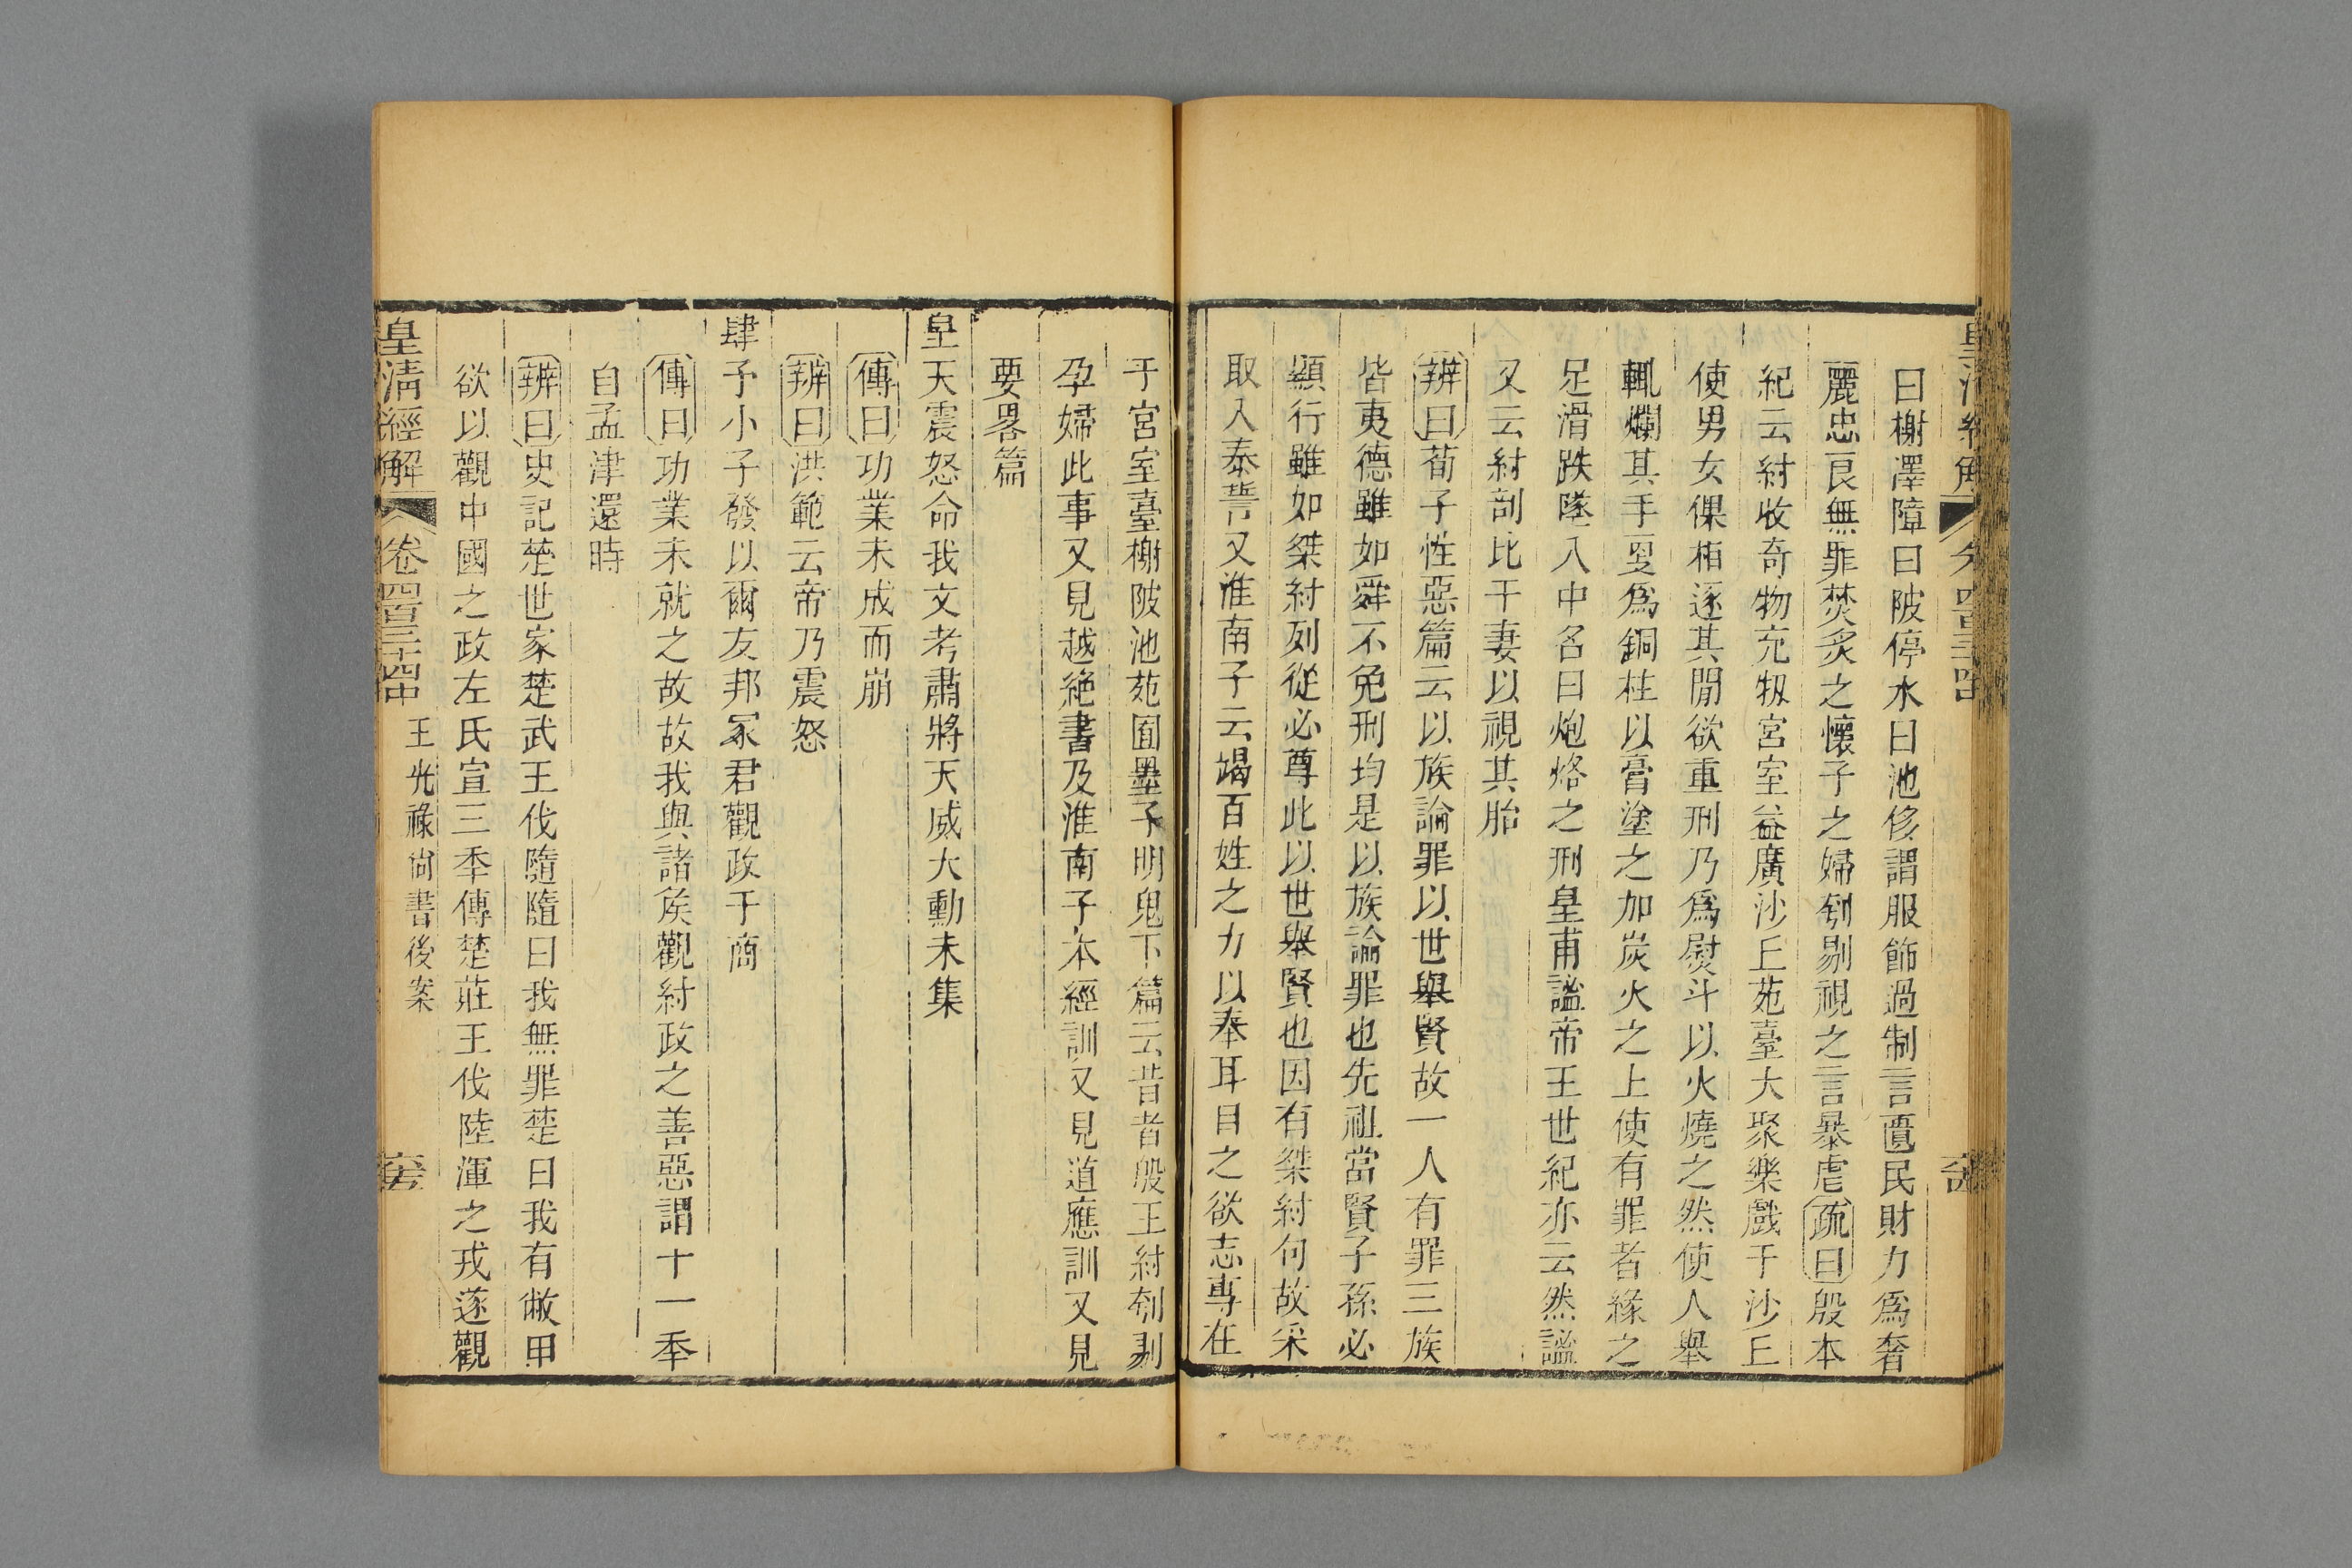 曰榭澤障曰陂停水曰池侈謂服飾過制言匱民財力爲奢
麗忠良無罪焚炙之懷子之婦刳剔視之言暴虐疏曰殷本
紀云紂收奇物充牣宮室益廣沙丘苑臺大聚樂戲于沙丘
使男女倮相逐其閒欲重刑乃爲熨斗以火燒之然使人舉
輒爛其手更爲銅柱以膏塗之加炭火之上使有罪者緣之
足滑跌墜入中名曰炮烙之刑皇甫謐帝王世紀亦云然謐
又云紂剖比干妻以視其胎
辨曰荀子性惡篇云以族論罪以世舉賢故一人有罪三族
皆夷德雖如舜不免刑均是以族論罪也先祖當賢子孫必
顯行雖如桀紂列從必尊此以世舉賢也因有桀紂句故采
取入泰誓又淮南子云竭百姓之力以奉耳目之欲志專在
于宮室臺榭陂池苑囿墨子明鬼下篇云昔者殷王紂刳剔
孕婦此事又見越絶書及淮南子本經訓又見道應訓又見
要畧篇
皇天震怒命我文考肅將天威大勳未集
傳曰功業未成而崩
辨曰洪範云帝乃震怒
肆予小子發以爾友邦冢君觀政于商
傳曰功業未就之故故我與諸矦觀紂政之善惡謂十一年
自孟津還時
辨曰史記楚世家楚武王伐隨隨曰我無罪楚曰我有敝甲
欲以觀中國之政左氏宣三年傳楚莊王伐陸渾之戎遂觀
皇清經解 卷四百三十四中 王光祿尚書後案